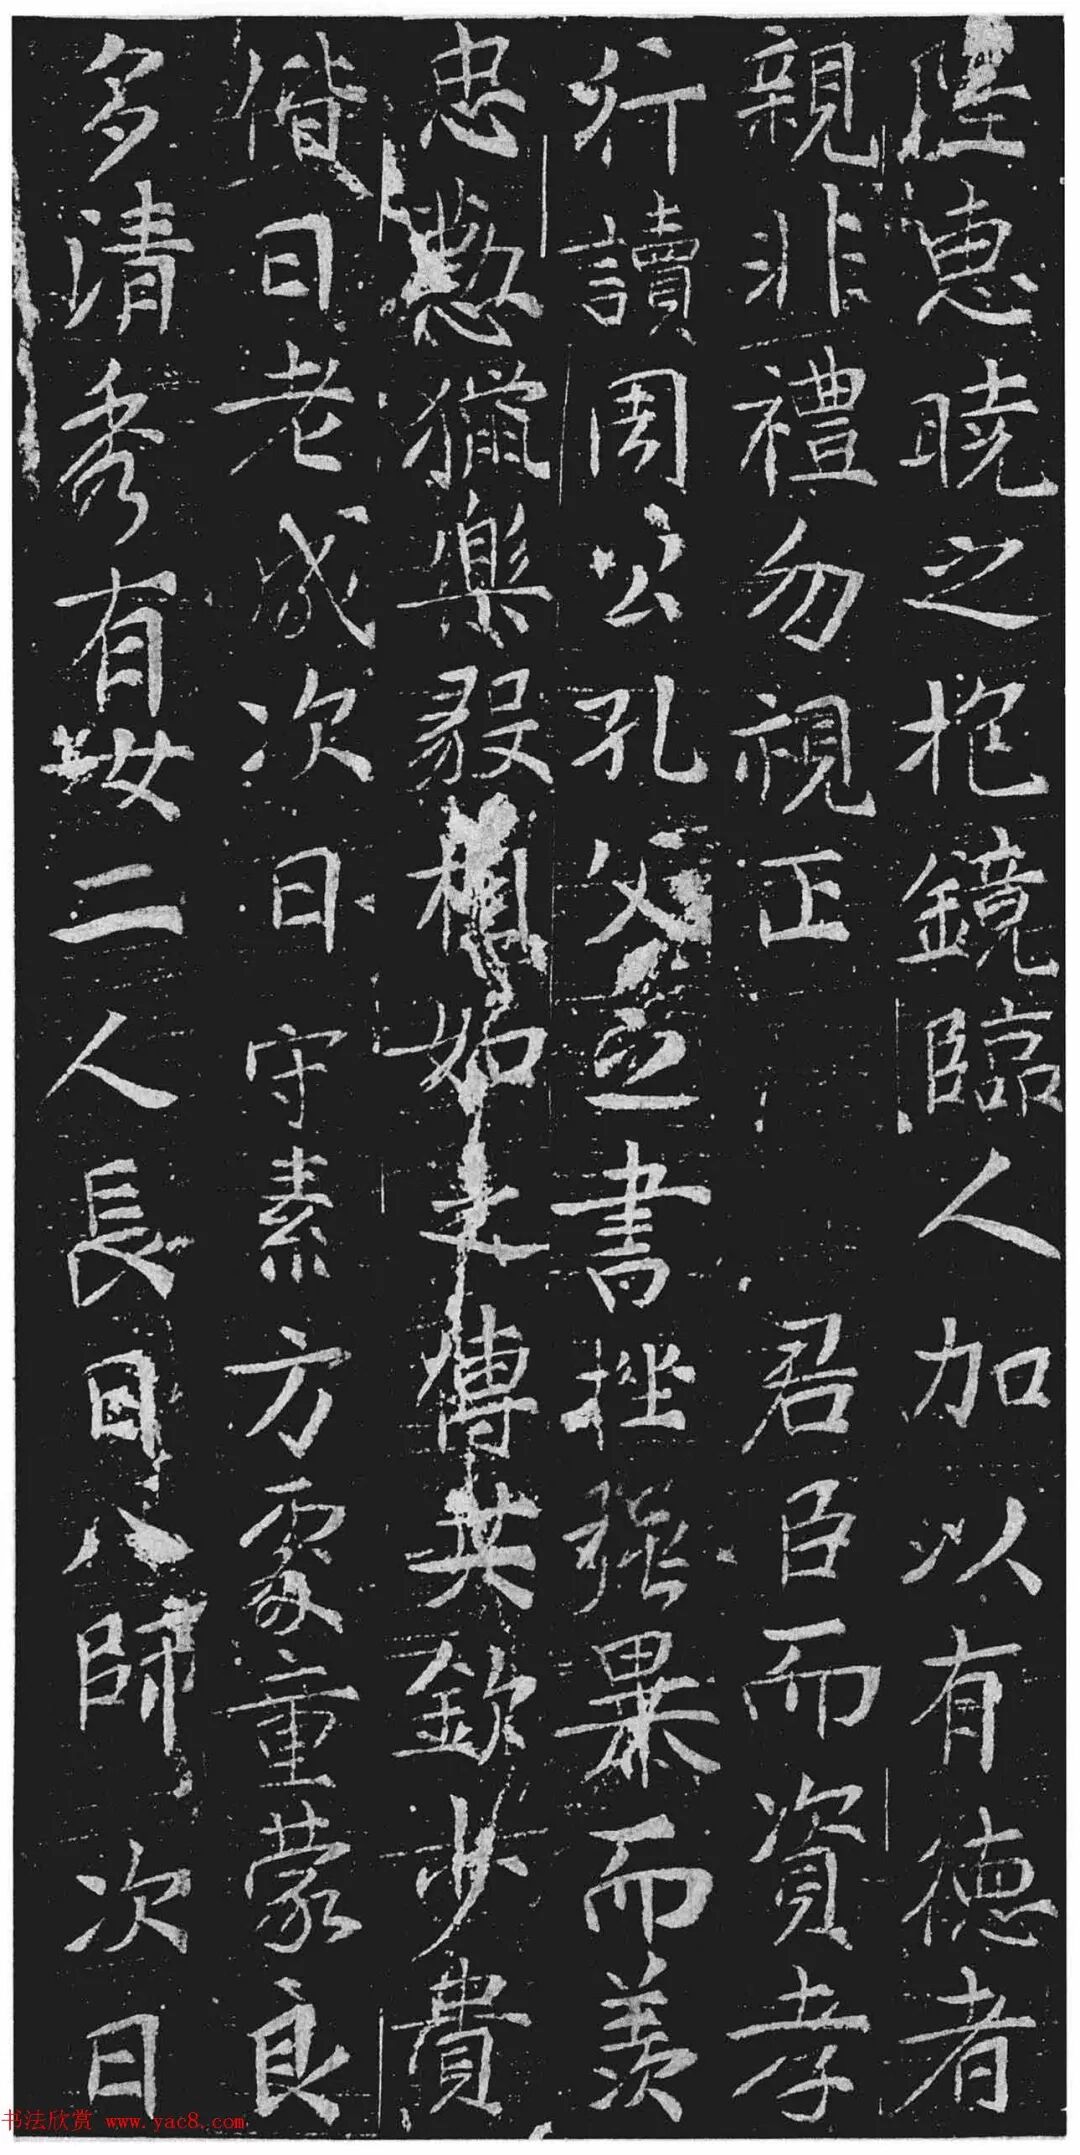 陞惠晓之抱鏡臨人加以有德者
親非禮勿視正君臣而資孝
行讀周公孔父之書挫强暴而羨
忠懃獵樂毅相如之傳其欽步貴
偕曰老成次曰守素方處童蒙良
多清秀有女二人長曰八師次曰
书法欣赏 www.yac8.com